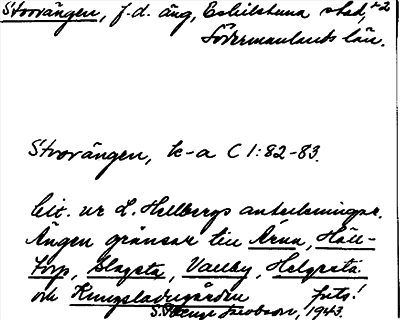 Storängen, f.d. äng, Eskilstuna stad, +2
Södermanlands län.
Storängen, k-a C 1:82-83.
Cit. ur L. Hellbergs anteckningar.
Ängen gränsar till Årna, Häll-
torp, Slagsta, Vallby, Helgesta
och Kungsladugården fuls!
Jacobson, 1943.